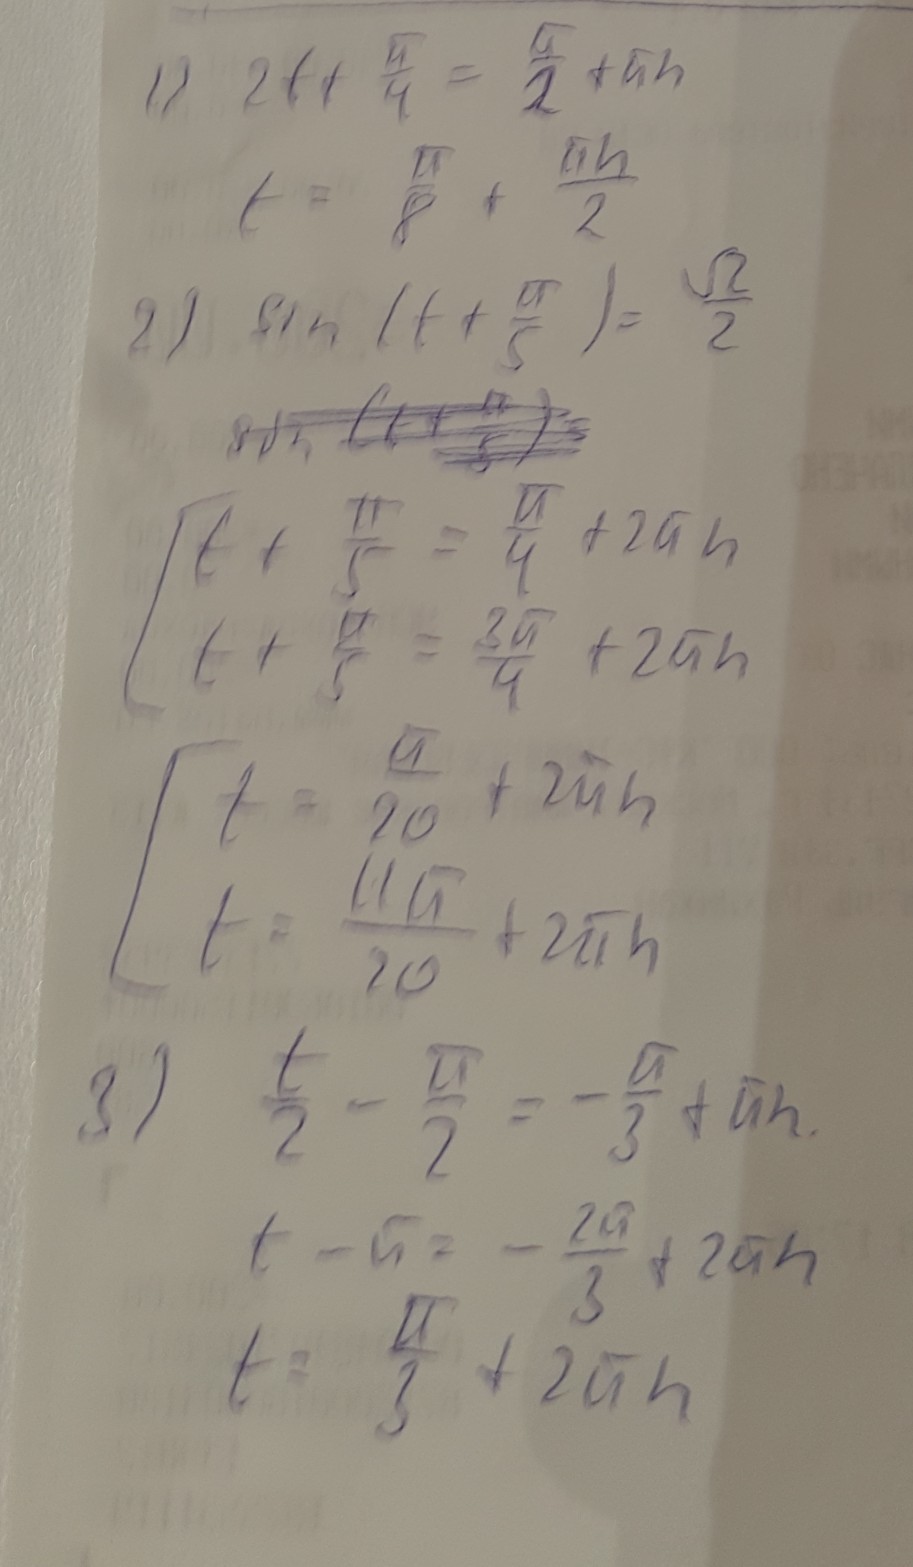 1) 2t + π/4 = π/2 + πn
t = π/8 + πn/2
2) sin (t + π/5) = √2/2
sin (t + π/5) =
[ t + π/5 = π/4 + 2πn
t + π/5 = 3π/4 + 2πn
[ t = π/20 + 2πn
t = 11π/20 + 2πn
3) t/2 - π/2 = - π/3 + πn.
t - π = - 2π/3 + 2πn
t = π/3 + 2πn